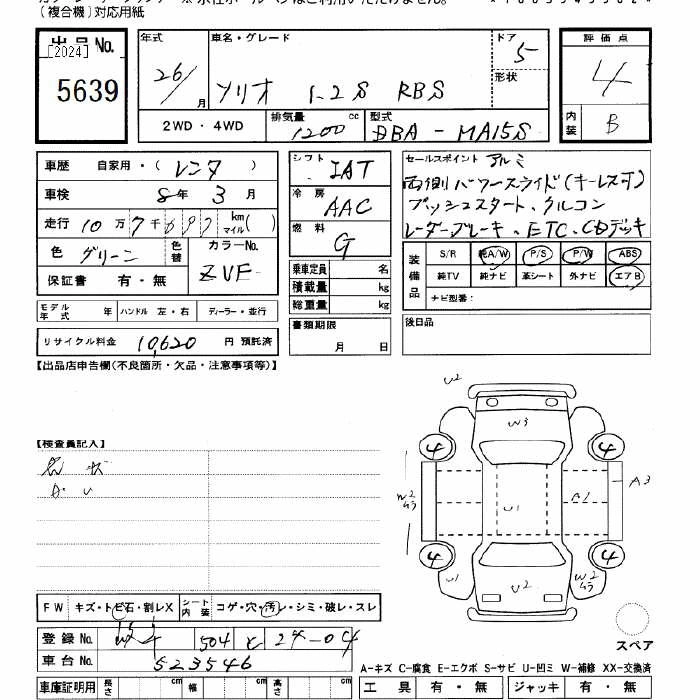 (複合機)対応用紙
出品No.
[2024]
5639
年式 26/ 月
車名・グレード ソリオ 1.2S RBS
ドア 5
形状
評価点 4
内装 B
2WD・4WD
排気量 1200 cc
型式 DBA-MA15S
車歴 自家用・(レンタ)
車検 8年 3月
走行 10万7千697 km マイル( )
色 グリーン 色替
カラーNo. ZVF
保証書 有・無
モデル年式 年 ハンドル 左・右 ディーラー・並行
リサイクル料金 10,620 円 預託済
シフト IAT
冷房 AAC
燃料 G
乗車定員 名
積載量 kg
総重量 kg
書類期限
月 日
セールスポイント アルミ
両側パワースライド(キーレス可)
プッシュスタート、クルコン
レーダーブレーキ、ETC、CDデッキ
装備品
S/R 純A/W P/S P/W ABS
純TV 純ナビ 革シート 外ナビ エアB
ナビ型番:
後日品
【出品店申告欄(不良箇所・欠品・注意事項等)】
【検査員記入】
A・U
U2
W3
4 4
W2
U1 A1 A3
4 4
W1 U2 W2
スペア
FW キズ・トビ石・割レX
シート内装 コゲ・穴・汚レ・シミ・破レ・スレ
登録No. 504 と 24-04
車台No. 523546
車庫証明用 長さ cm 幅 cm 高さ cm
A-キズ C-腐食 E-エクボ S-サビ U-凹ミ W-補修 XX-交換済
工具 有・無 ジャッキ 有・無